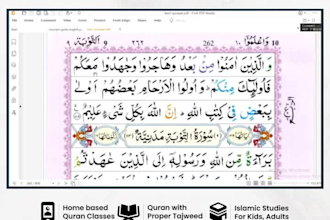 التوبة ٩
٢٦٢
262
واعلموا ١٠
وَالَّذِينَ آمَنُوا مِنْ بَعْدُ وَهَاجَرُوا وَجَاهَدُوا مَعَكُمْ
فَأُولَٰئِكَ مِنْكُمْ ۚ وَأُولُوا الْأَرْحَامِ بَعْضُهُمْ أَوْلَىٰ
بِبَعْضٍ فِي كِتَابِ اللَّهِ ۗ إِنَّ اللَّهَ بِكُلِّ شَيْءٍ عَلِيمٌ
سُورَةُ التَّوْبَةِ مَدَنِيَّةٌ
بَرَاءَةٌ مِنَ اللَّهِ وَرَسُولِهِ إِلَى الَّذِينَ عَاهَدْتُمْ
Home based
Quran Classes
Quran with
Proper Tajweed
Islamic Studies
For Kids, Adults